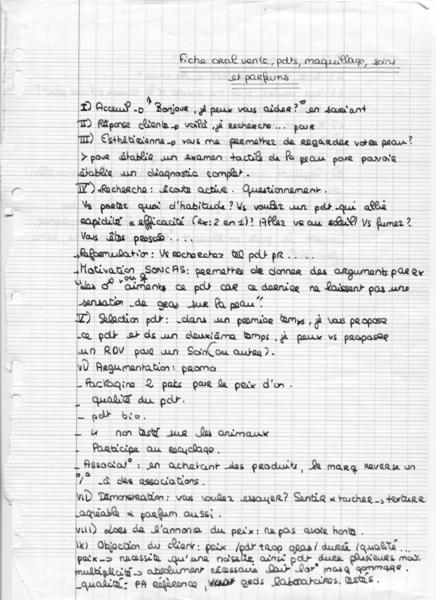 Fiche oral vente, pdts, maquillage, soins
et parfums
I) Acceuil → "Bonjour, je peux vous aider?" en souriant
II) Réponse cliente → voilà, je recherche... pour
III) Esthéticienne → vous me permettez de regarder votre peau?
> pour établir un examen tactile de la peau pour pouvoir
établir un diagnostic complet.
IV) Recherche: écoute active. Questionnement.
Vs portez quoi d'habitude? Vs voulez un pdt qui allie
rapidité & efficacité (ex: 2 en 1)? Allez vs au soleil? Vs fumez?
Vous êtes pressée....
Reformulation: Vs recherchez tel pdt pr.....
Motivation SONCAS: permettre de donner des arguments par ex
"les aiments ce pdt car ce dernier ne laissent pas une
sensation de gras sur la peau".
V) Sélection pdt: dans un premier temps, je vous propose
ce pdt et de un deuxième temps, je peux vs proposer
un RDV pour un soin (ou autre).
VI) Argumentation: promo
- Packaging 2 pots pour le prix d'un.
- qualité du pdt.
- pdt bio.
- ↳ non testé sur les animaux
- Participe au recyclage.
- Associat°: en achetant des produits, la marq reverse un
% à des associations.
VII) Démonstration: vous voulez essayer? Sentir & toucher → texture
agréable & parfum aussi.
VIII) Lors de l'annonce du prix: ne pas avoir honte.
IX) Objection du client: prix / pdt trop gras / durée / qualité...
prix → nécessite qu'une noisette ainsi pdt dure plusieurs mois
multiplicité → absolument nécessaire gommage.
- qualité: PA référence, grds laboratoires, testés.